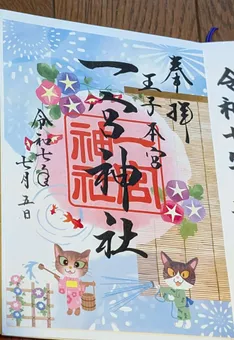 奉拝
王子本宮
一宮神社
一宮
神社
令和七年
七月五日
令和七年